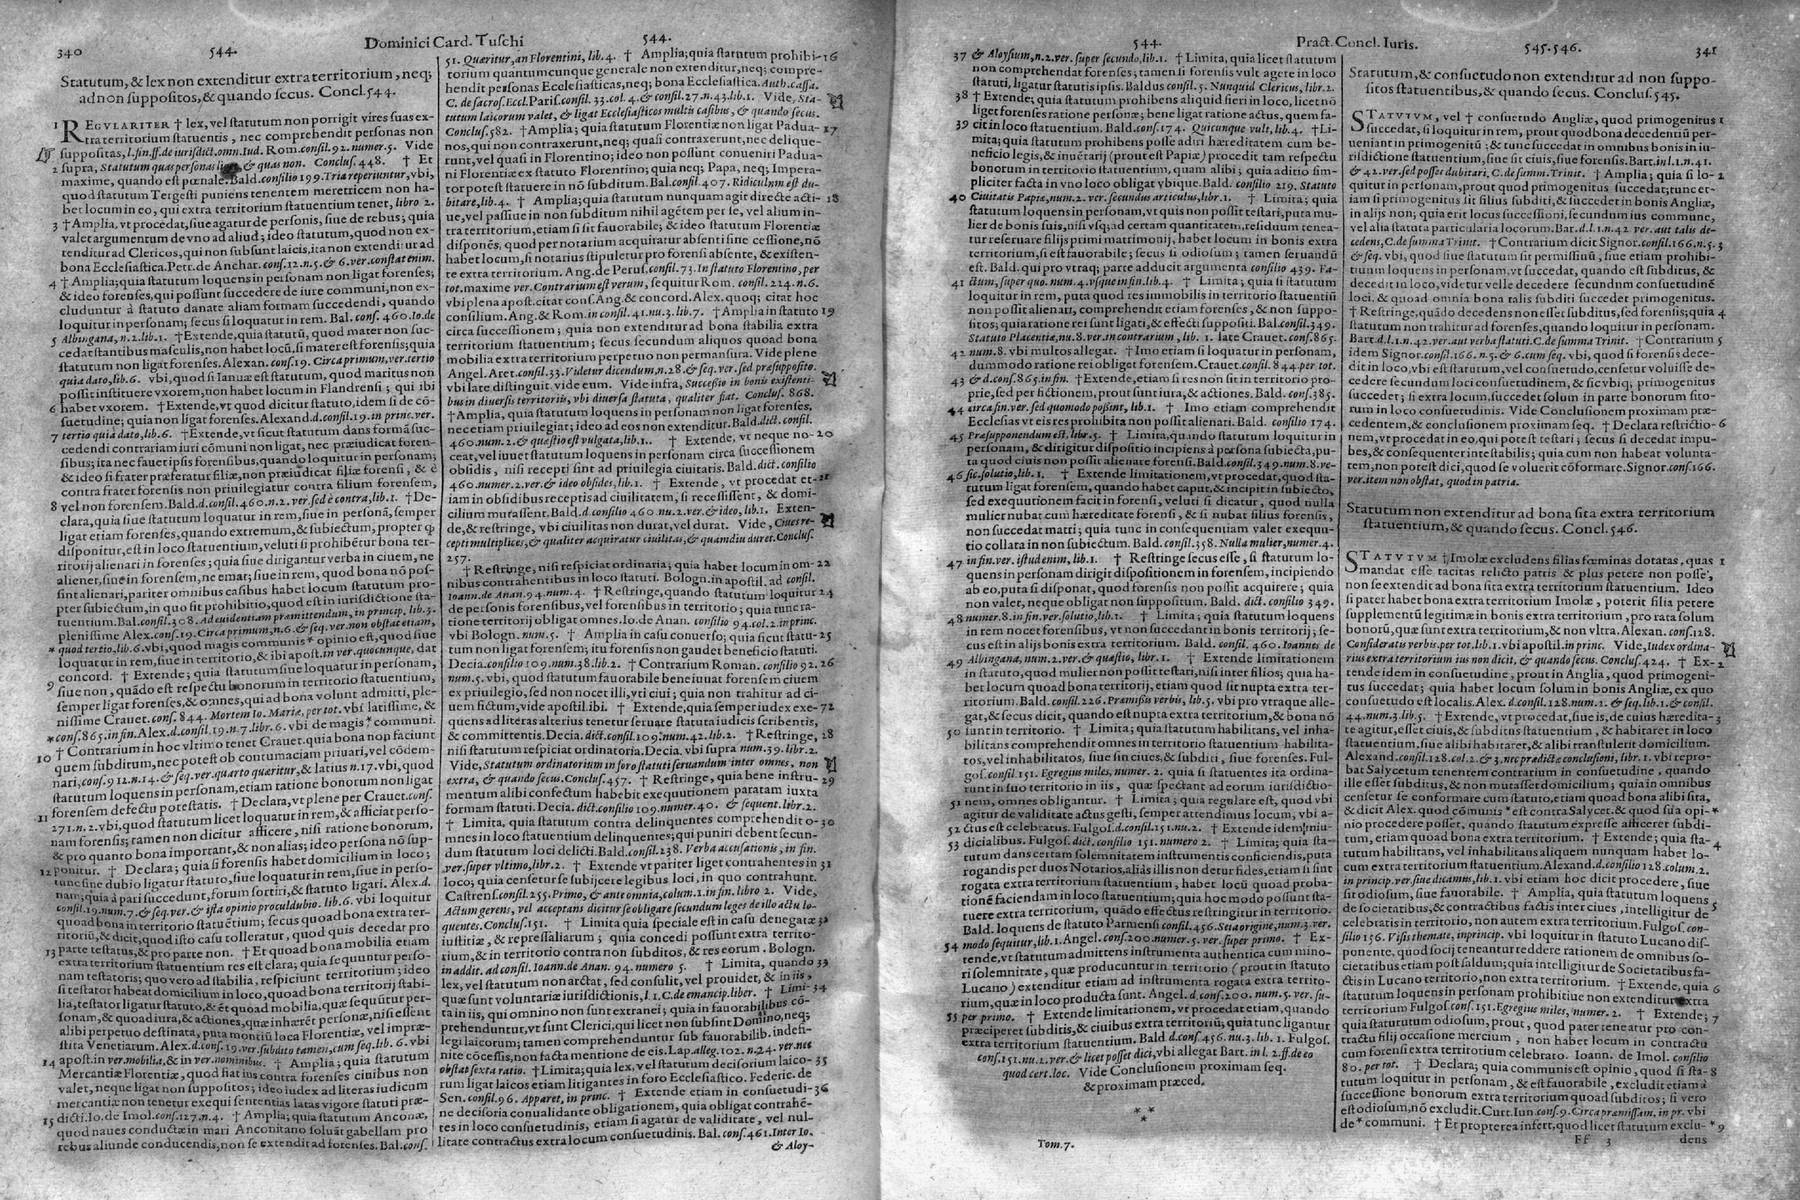 340 544. Dominici Card. Tuschi 544.
Statutum, & lex non extenditur extra territorium, neq;
ad non suppositos, & quando secus. Concl. 544.
1 REGVLARITER † lex, vel statutum non porrigit vires suas ex-
tra territorium statuentis, nec comprehendit personas non
suppositas, l. fin. ff. de iurisdict. omn. Iud. Rom. cons. 92. numer. 5. Vide
2 supra, Statutum quas personas & quas non. Conclus. 448. † Et
maxime, quando est pœnale. Bald. consilio 199. Tria reperiuntur, vbi,
quod statutum Tergesti puniens tenentem meretricem non ha-
bet locum in eo, qui extra territorium statuentium tenet, libro 2.
3 † Amplia, vt procedat, siue agatur de personis, siue de rebus; quia
valet argumentum de vno ad aliud; ideo statutum, quod non ex-
tenditur ad Clericos, qui non subsunt laicis, ita non extenditur ad
bona Ecclesiastica. Petr. de Anchar. cons. 12. n. 5. & 6. ver. constat enim.
4 † Amplia; quia statutum loquens in personam non ligat forenses;
& ideo forenses, qui possunt succedere de iure communi, non ex-
cluduntur à statuto danate aliam formam succedendi, quando
loquitur in personam; secus si loquatur in rem. Bal. cons. 460. Io. de
5 Albingana, n. 2. lib. 1. † Extende, quia statutũ, quod mater non suc-
cedat stantibus masculis, non habet locũ, si mater est forensis; quia
statutum non ligat forenses. Alexan. cons. 19. Circa primum, ver. tertio
quia dato, lib. 6. vbi, quod si Ianuæ est statutum, quod maritus non
possit instituere vxorem, non habet locum in Flandrensi; qui ibi
6 habet vxorem. † Extende, vt quod dicitur statuto, idem si de cõ-
suetudine; quia non ligat forenses. Alexand. d. cons. 19. in princ. ver.
7 tertio quia dato, lib. 6. † Extende, vt sicut statutum dans formã suc-
cedendi contrariam iuri cõmuni non ligat, nec præiudicat foren-
sibus; ita nec fauet ipsis forensibus, quando loquitur in personam;
& ideo si frater præferatur filiæ, non præiudicat filiæ forensi, & è
contra frater forensis non priuilegiatur contra filium forensem,
8 vel non forensem. Bald. d. consil. 460. n. 2. ver. sed è contra, lib. 1. † De-
clara, quia siue statutum loquatur in rem, siue in personã, semper
ligat etiam forenses, quando extremum, & subiectum, propter q̃
disponitur, est in loco statuentium, veluti si prohibẽtur bona ter-
ritorij alienari in forenses; quia siue dirigantur verba in ciuem, ne
alienet, siue in forensem, ne emat; siue in rem, quod bona nõ pos-
sint alienari, pariter omnibus casibus habet locum statutum pro-
pter subiectum, in quo sit prohibitio, quod est in iurisdictione sta-
tuentium. Bal. consil. 308. Ad euidentiam præmittendum, in princip. lib. 3.
plenissime Alex. cons. 19. Circa primum, n. 6. & seq. ver. non obstat etiam,
* quod tertio, lib. 6. vbi, quod magis communis * opinio est, quod siue
loquatur in rem, siue in territorio, & ibi apost. in ver. quocunque, dat
concord. † Extende; quia statutum siue loquatur in personam,
9 siue non, quãdo est respectu bonorum in territorio statuentium,
semper ligat forenses, & omnes, qui ad bona volunt admitti, ple-
nissime Crauet. cons. 844. Mortem Io. Mariæ, per tot. vbi latissime, &
* cons. 865. in fin. Alex. d. consil. 19. n. 7. lib. 6. vbi de magis * communi.
10 † Contrarium in hoc vltimo tenet Crauet. quia bona non faciunt
quem subditum, nec potest ob contumaciam priuari, vel cõdem-
nari, cons. 912. n. 14. & seq. ver. quarto quæritur, & latius n. 17. vbi, quod
statutum loquens in personam, etiam ratione bonorum non ligat
forensem defectu potestatis. † Declara, vt plene per Crauet. cons.
11 271. n. 2. vbi, quod statutum licet loquatur in rem, & afficiat perso-
nam forensis; tamen non dicitur afficere, nisi ratione bonorum,
& pro quanto bona important, & non alias; ideo persona nõ sup-
12 ponitur. † Declara; quia si forensis habet domicilium in loco;
tunc sine dubio ligatur statuto, siue loquatur in rem, siue in perso-
nam; quia à pari succedunt, forum sortiri, & statuto ligari. Alex. d.
consil. 19. num. 7. & seq. ver. & ista opinio proculdubio. lib. 6. vbi loquitur
quoad bona in territorio statuẽtium; secus quoad bona extra ter-
ritoriũ, & dicit, quod isto casu tolleratur, quod quis decedat pro
13 parte testatus, & pro parte non. † Et quoad bona mobilia etiam
extra territorium statuentium res est clara; quia sequuntur perso-
nam testatoris; quo vero ad stabilia, respiciunt territorium; ideo
si testator habeat domicilium in loco, quoad bona territorij stabi-
lia, testator ligatur statuto, & ẽt quoad mobilia, quæ sequũtur per-
sonam, & quoad iura, & actiones, quæ inhærẽt personæ, nisi essent
alibi perpetuo destinata, puta montiũ loca Florentiæ, vel impræ-
stita Venetiarum. Alex. d. cons. 19. ver. subdito tamen, cum seq. lib. 6. vbi
14 apost. in ver. mobilia, & in ver. nominibus. † Amplia; quia statutum
Mercantiæ Florentiæ, quod fiat ius contra forenses ciuibus non
valet, neque ligat non suppositos; ideo iudex ad literas iudicum
mercantiæ non tenetur exequi sententias latas vigore statuti præ-
dicti. Io. de Imol. cons. 127. n. 4. † Amplia; quia statutum Anconæ,
15 quod naues conductæ in mari Anconitano soluãt gabellam pro
rebus aliunde conducendis, non se extendit ad forenses. Bal. cons.
51. Quæritur, an Florentini, lib. 4. † Amplia; quia statutum prohibi- 16
torium quantumcunque generale non extenditur, neq; compre-
hendit personas Ecclesiasticas, neq; bona Ecclesiastica. Auth. cassa.
C. de sacros. Eccl. Paris. consil. 33. col. 4. & consil. 27. n. 43. lib. 1. Vide, Sta-
tutum laicorum valet, & ligat Ecclesiasticos multis casibus, & quando secus.
Conclus. 582. † Amplia; quia statutum Florentiæ non ligat Padua- 17
nos, qui non contraxerunt, neq; quasi contraxerunt, nec delique-
runt, vel quasi in Florentino; ideo non possunt conueniri Padua-
ni Florentiæ ex statuto Florentino; quia neq; Papa, neq; Impera-
tor potest statuere in nõ subditum. Bal. consil. 407. Ridiculum est du-
bitare, lib. 4. † Amplia; quia statutum nunquam agit directe acti- 18
ue, vel passiue in non subditum nihil agẽtem per se, vel alium in-
tra territorium, etiam si sit fauorabile; & ideo statutum Florentiæ
disponẽs, quod per notarium acquiratur absenti sine cessione, nõ
habet locum, si notarius stipuletur pro forensi absente, & existen-
te extra territorium. Ang. de Perus. consil. 73. In statuto Florentino, per
tot. maxime ver. Contrarium est verum, sequitur Rom. consil. 224. n. 6.
vbi plena apost. citat cons. Ang. & concord. Alex. quoq; citat hoc
consilium. Ang. & Rom. in consil. 41. nu. 3. lib. 7. † Amplia in statuto 19
circa successionem; quia non extenditur ad bona stabilia extra
territorium statuentium; secus secundum aliquos quoad bona
mobilia extra territorium perpetuo non permansura. Vide plene
Angel. Aret. consil. 33. Videtur dicendum, n. 28. & seq. ver. sed præsupposito.
vbi late distinguit, vide eum. Vide infra, Successio in bonis existenti-
bus in diuersis territoriis, vbi diuersa statuta, qualiter fiat. Conclus. 868.
† Amplia, quia statutum loquens in personam non ligat forenses,
nec etiam priuilegiat; ideo ad eos non extenditur. Bald. dict. consil.
460. num. 2. & quæstio est vulgata, lib. 1. † Extende, vt neque no- 20
ceat, vel iuuet statutum loquens in personam circa successionem
obsidis, nisi recepti sint ad priuilegia ciuitatis. Bald. dict. consilio
460. numer. 2. ver. & ideo obsides, lib. 1. † Extende, vt procedat et- 21
iam in obsidibus receptis ad ciuilitatem, si recessissent, & domi-
cilium mutassent. Bald. d. consilio 460. nu. 2. ver. & ideo, lib. 1. Exten-
de, & restringe, vbi ciuilitas non durat, vel durat. Vide, Ciues re-
cepti multiplices, & qualiter acquiratur ciuilitas, & quamdiu duret. Conclus.
257.
† Restringe, nisi respiciat ordinaria; quia habet locum in om- 22
nibus contrahentibus in loco statuti. Bologn. in apostil. ad consil.
Ioann. de Anan. 94. num. 4. † Restringe, quando statutum loquitur 24
de personis forensibus, vel forensibus in territorio; quia tunc ra-
tione territorij obligat omnes. Io. de Anan. consilio 94. col. 2. in princ.
vbi Bologn. num. 5. † Amplia in casu conuerso; quia sicut statu- 25
tum non ligat forensem; itu forensis non gaudet beneficio statuti.
Decia. consilio 109. num. 38. lib. 2. † Contrarium Roman. consilio 92. 26
num. 5. vbi, quod statutum fauorabile bene iuuat forensem ciuem
ex priuilegio, sed non nocet illi, vti ciui; quia non trahitur ad ci-
uem fictum, vide apostil. ibi. † Extende, quia semper iudex exe- 72
quens ad literas alterius tenetur seruare statuta iudicis scribentis,
& committentis. Decia. dict. consil. 109. num. 42. lib. 2. † Restringe, 28
nisi statutum respiciat ordinatoria. Decia. vbi supra num. 39. libr. 2.
Vide, Statutum ordinatorium in foro statuti seruandum inter omnes, non
extra, & quando secus. Conclus. 457. † Restringe, quia bene instru- 29
mentum alibi confectum habebit exequutionem paratam iuxta
formam statuti. Decia. dict. consilio 109. numer. 40. & sequent. libr. 2.
† Limita, quia statutum contra delinquentes comprehendit o- 30
mnes in loco statuentium delinquentes; qui puniri debent secun-
dum statutum loci delicti. Bald. consil. 238. Verba accusationis, in fin.
ver. super vltimo, libr. 2. † Extende vt pariter liget contrahentes in 31
loco; quia censetur se subijcere legibus loci, in quo contrahunt.
Castrens. consil. 255. Primo, & ante omnia, colum. 1. in fin. libro 2. Vide,
Actum gerens, vel acceptans dicitur se obligare secundum leges de illo actu lo-
quentes. Conclus. 151. † Limita quia speciale est in casu denegatæ 32
iustitiæ, & repressaliarum; quia concedi possunt extra territo-
rium, & in territorio contra non subditos, & res eorum. Bologn.
in addit. ad consil. Ioann. de Anan. 94. numero 5. † Limita, quando 33
lex, vel statutum non arctat, sed consulit, vel prouidet, & in iis,
quæ sunt voluntariæ iurisdictionis, l. 1. C. de emancip. liber. † Limi- 34
ta in iis, qui omnino non sunt extranei; quia in fauorabilibus cõ-
prehenduntur, vt sunt Clerici, qui licet non subsint Domino, neq;
legi laicorum; tamen comprehenduntur sub fauorabilib. indefi-
nite cõcessis, non facta mentione de eis. Lap. alleg. 102. n. 24. ver. nec
obstat sexta ratio. † Limita; quia lex, vel statutum decisorium laico- 35
rum ligat laicos etiam litigantes in foro Ecclesiastico. Federic. de
Sen. consil. 96. Apparet, in princ. † Extende etiam in consuetudi- 36
ne decisoria conualidante obligationem, quia obligat contrahẽ-
tes in loco consuetudinis, etiam si agatur de validitate, vel nul-
litate contractus extra locum consuetudinis. Bal. cons. 461. Inter Io.
& Aloy-
544. Pract. Concl. Iuris. 545. 546. 341
37 & Aloysium, n. 2. ver. super secundo, lib. 1. † Limita, quia licet statutum
non comprehendat forenses; tamen si forensis vult agere in loco
statuti, ligatur statutis ipsis. Baldus consil. 5. Nunquid Clericus, libr. 2.
38 † Extende; quia statutum prohibens aliquid fieri in loco, licet nõ
liget forenses ratione personæ; bene ligat ratione actus, quem fa-
39 cit in loco statuentium. Bald. cons. 174. Quicunque vult, lib. 4. † Li-
mita; quia statutum prohibens posse adiri hæreditatem cum be-
neficio legis, & inuẽtarij (prout est Papiæ) procedit tam respectu
bonorum in territorio statuentium, quam alibi; quia aditio sim-
pliciter facta in vno loco obligat vbique. Bald. consilio 219. Statuto
40 Ciuitatis Papiæ, num. 2. ver. secundus articulus, libr. 1. † Limita; quia
statutum loquens in personam, vt quis non possit testari; puta mu-
lier de bonis suis, nisi vsq; ad certam quantitatem, residuum tenea-
tur reseruare filijs primi matrimonij, habet locum in bonis extra
territorium, si est fauorabile; secus si odiosum; tamen seruandũ
est. Bald. qui pro vtraq; parte adducit argumenta consilio 439. Fa-
41 ctum, super quo. num. 4. vsque in fin. lib. 4. † Limita; quia si statutum
loquitur in rem, puta quod res immobilis in territorio statuentiũ
non possit alienari, comprehendit etiam forenses, & non suppo-
sitos; quia ratione rei sunt ligati, & effecti suppositi. Bal. consil. 349.
Statuto Placentiæ, nu. 8. ver. in contrarium, lib. 1. late Crauet. cons. 865.
42 num. 8. vbi multos allegat. † Imo etiam si loquatur in personam,
dummodo ratione rei obliget forensem. Crauet. consil. 844. per tot.
43 & d. cons. 865. in fin. † Extende, etiam si res non sit in territorio pro-
prie, sed per fictionem, prout sunt iura, & actiones. Bald. cons. 385.
44 circa fin. ver. sed quomodo possint, lib. 1. † Imo etiam comprehendit
Ecclesias vt eis res prohibita non possit alienari. Bald. consilio 174.
45 Præsupponendum est, libr. 5. † Limita, quando statutum loquitur in
personam, & dirigitur dispositio incipiens à persona subiecta, pu-
ta quod ciuis non possit alienare forensi. Bald. consil. 349. num. 8. ve-
46 sic. solutio, lib. 1. † Extende limitationem, vt procedat, quod sta-
tutum ligat forensem, quando habet caput, & incipit in subiecto,
sed exequutionem facit in forensi, veluti si dicatur, quod nulla
mulier nubat cum hæreditate forensi, & si nubat filius forensis,
non succedat matri; quia tunc in consequentiam valet exequu-
tio collata in non subiectum. Bald. consil. 358. Nulla mulier, numer. 4.
47 in fin. ver. istud enim, lib. 1. † Restringe secus esse, si statutum lo-
quens in personam dirigit dispositionem in forensem, incipiendo
ab eo, puta si disponat, quod forensis non possit acquirere; quia
non valet, neque obligat non suppositum. Bald. dict. consilio 349.
48 numer. 8. in fin. ver. solutio, lib. 1. † Limita; quia statutum loquens
in rem nocet forensibus, vt non succedant in bonis territorij; se-
cus est in alijs bonis extra territorium. Bald. consil. 460. Ioannes de
49 Albingana, num. 2. ver. & quæstio, libr. 1. † Extende limitationem
in statuto, quod mulier non possit testari, nisi inter filios; quia ha-
bet locum quoad bona territorij, etiam quod sit nupta extra ter-
ritorium. Bald. consil. 226. Præmissis verbis, lib. 5. vbi pro vtraque alle-
gat, & secus dicit, quando est nupta extra territorium, & bona nõ
50 sunt in territorio. † Limita; quia statutum habitans, vel inha-
bitans comprehendit omnes in territorio statuentium habita-
tos, vel inhabitatos, siue sin ciues, & subditi, siue forenses. Ful-
gos. consil. 151. Egregius miles, numer. 2. quia si statuentes ita ordina-
runt in suo territorio in iis, quæ spectant ad eorum iurisdictio-
51 nem, omnes obligantur. † Limita; quia regulare est, quod vbi
agitur de validitate actus gesti, semper attendimus locum, vbi a-
52 ctus est celebratus. Fulgos. d. consil. 151. nu. 2. † Extende idem in iu-
53 dicialibus. Fulgos. dict. consilio 151. numero 2. † Limita; quia sta-
tutum dans certam solemnitatem instrumentis conficiendis, puta
rogandis per duos Notarios, aliàs illis non detur fides, etiam si sint
rogata extra territorium statuentium, habet locũ quoad proba-
tionẽ faciendam in loco statuentium; quia hoc modo possunt sta-
tuere extra territorium, quãdo effectus restringitur in territorio.
Bald. loquens de statuto Parmensi consil. 456. Seia origine, num. 3. ver.
54 modo sequitur, lib. 1. Angel. cons. 200. numer. 5. ver. super primo. † Ex-
tende, vt statutum admittens instrumenta authentica cum mino-
ri solemnitate, quæ producuntur in territorio (prout in statuto
Lucano) extenditur etiam ad instrumenta rogata extra territo-
rium, quæ in loco producta sunt. Angel. d. cons. 200. num. 5. ver. su-
55 per primo. † Extende limitationem, vt procedat etiam, quando
præciperet subditis, & ciuibus extra territoriũ; quia tunc ligantur
etiam extra territorium statuentium. Bald d. cons. 456. nu. 3. lib. 1. Fulgos.
cons. 151. nu. 2. ver. & licet posset dici, vbi allegat Bart. in l. 2. ff. de eo
quod cert. loc. Vide Conclusionem proximam seq.
& proximam præced.
* * *
Tom. 7.
Statutum, & consuetudo non extenditur ad non suppo-
sitos statuentibus, & quando secus. Conclus. 545.
STATVTVM, vel † consuetudo Angliæ, quod primogenitus 1
succedat, si loquitur in rem, prout quod bona decedentiũ per-
ueniant in primogenitũ; & tunc succedat in omnibus bonis in iu-
risdictione statuentium, siue sit ciuis, siue forensis. Bart. in l. 1. n. 41.
& 42. ver. sed posset dubitari, C. de summ. Trinit. † Amplia; quia si lo- 2
quitur in personam, prout quod primogenitus succedat; tunc et-
iam si primogenitus sit filius subditi, & succedet in bonis Angliæ,
in alijs non; quia erit locus successioni, secundum ius commune,
vel alia statuta particularia locorum. Bar. d. l. 1. n. 42 ver. aut talis de-
cedens, C. de summa Trinit. † Contrarium dicit Signor. consil. 166. n. 5. 3
& seq. vbi, quod siue statutum sit permissiuũ, siue etiam prohibi-
tiuum loquens in personam, vt succedat, quando est subditus, &
decedit in loco, videtur velle decedere secundum consuetudinẽ
loci, & quod omnia bona talis subditi succedet primogenitus.
† Restringe, quãdo decedens non esset subditus, sed forensis; quia 4
statutum non trahitur ad forensem, quando loquitur in personam.
Bart. d. l. 1. n. 42. ver. aut verba statuti. C. de summa Trinit. † Contrarium 5
idem Signor. consil. 166. n. 5. & 6. cum seq. vbi, quod si forensis dece-
dit in loco, vbi est statutum, vel consuetudo, censetur voluisse de-
cedere secundum loci consuetudinem, & sic vbiq; primogenitus
succedet; si extra locum, succedet solum in parte bonorum sito-
rum in loco consuetudinis. Vide Conclusionem proximam præ-
cedentem, & conclusionem proximam seq. † Declara restrictio- 6
nem, vt procedat in eo, qui potest testari; secus si decedat impu-
bes, & consequenter intestabilis; quia cum non habeat volunta-
tem, non potest dici, quod se voluerit cõformare. Signor. cons. 166.
ver. item non obstat, quod in patria.
Statutum non extenditur ad bona sita extra territorium
statuentium, & quando secus. Concl. 546.
STATVTVM † Imolæ excludens filias fœminas dotatas, quas 1
mandat esse tacitas relicto patris & plus petere non posse,
non se extendit ad bona sita extra territorium statuentium. Ideo
si pater habet bona extra territorium Imolæ, poterit filia petere
supplementũ legitimæ in bonis extra territorium, pro rata solum
bonorũ, quæ sunt extra territorium, & non vltra. Alexan. cons. 128.
Consideratis verbis. per tot. lib. 1. vbi apostil. in princ. Vide, Iudex ordina-
rius extra territorium ius non dicit, & quando secus. Conclus. 424. † Ex- 2
tende idem in consuetudine, prout in Anglia, quod primogeni-
tus succedat; quia habet locum solum in bonis Angliæ, ex quo
consuetudo est localis. Alex. d. consil. 128. num. 2. & seq. lib. 1. & consil.
44. num. 3. lib. 5. † Extende, vt procedat, siue is, de cuius hæredita- 3
te agitur, esset ciuis, & subditus statuentium, & habitaret in loco
statuentium, siue alibi habitaret, & alibi transtulerit domicilium.
Alexand. consil. 128. col. 2. & 3. nec prædictæ conclusioni, libr. 1. vbi repro-
bat Salycetum tenentem contrarium in consuetudine, quando
ille esset subditus, & non mutasset domicilium; quia in omnibus
censetur se conformare cum statuto, etiam quoad bona alibi sita,
& dicit Alex. quod cõmunis * est contra Salycet. & quod sua opi- *
nio procedere posset, quando statutum expresse afficeret subdi-
tum, etiam quoad bona extra territorium. † Extende; quia sta- 4
tutum habitans, vel inhabitans aliquem nunquam habet lo-
cum extra territorium statuentium. Alexand. d. consilio 128. colum. 2.
in princip. ver. siue dicamus, lib. 1. vbi etiam hoc dicit procedere, siue
sit odiosum, siue fauorabile. † Amplia, quia statutum loquens 5
de societatibus, & contractibus factis inter ciues, intelligitur de
celebratis in territorio, non autem extra territorium. Fulgos. con-
silio 156. Visis themate, in princip. vbi loquitur in statuto Lucano dis-
ponente, quod socij teneantur reddere rationem de omnibus so-
cietatibus etiam post saldum; quia intelligitur de Societatibus fa-
ctis in Lucano territorio, non extra territorium. † Extende, quia 6
statutum loquens in personam prohibitiue non extenditur extra
territorium Fulgos. consil. 151. Egregius miles, numer. 2. † Extende; 7
quia statutum odiosum, prout, quod pater teneatur pro con-
tractu filij occasione mercium, non habet locum in contractu
cum forensi extra territorium celebrato. Ioann. de Imol. consilio
80. per tot. † Declara; quia communis est opinio, quod si sta- 8
tutum loquitur in personam, & est fauorabile, excludit etiam à
successione bonorum extra territorium quoad subditos; si vero
est odiosum, nõ excludit. Curt. Iun. cons. 9. Circa præmissam, in pr. vbi
de * communi. † Et propterea infert, quod licet statutum exclu- * 9
Ff 3 dens